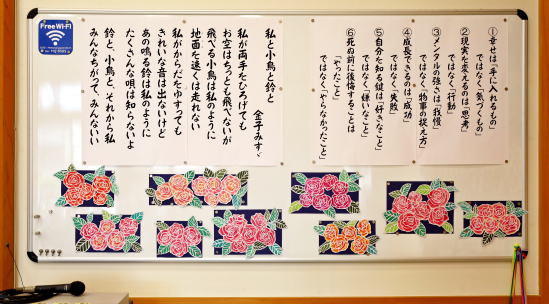 Free Wi-Fi
①幸せは「手に入れるもの」
ではなく「気づくもの」
②現実を変えるのは「思考」
ではなく「行動」
③メンタルの強さは「我慢」
ではなく「物事の捉え方」
④成長できるのは「成功」
ではなく「失敗」
⑤自分を知る鍵は「好きなこと」
ではなく「嫌いなこと」
⑥死ぬ前に後悔することは
「やったこと」
ではなく「やらなかったこと」
私と小鳥と鈴と
金子みすゞ
私が両手をひろげても
お空はちっとも飛べないが
飛べる小鳥は私のように
地面を速くは走れない
私がからだをゆすっても
きれいな音は出ないけど
あの鳴る鈴は私のように
たくさんな唄は知らないよ
鈴と、小鳥と、それから私
みんなちがって、みんないい